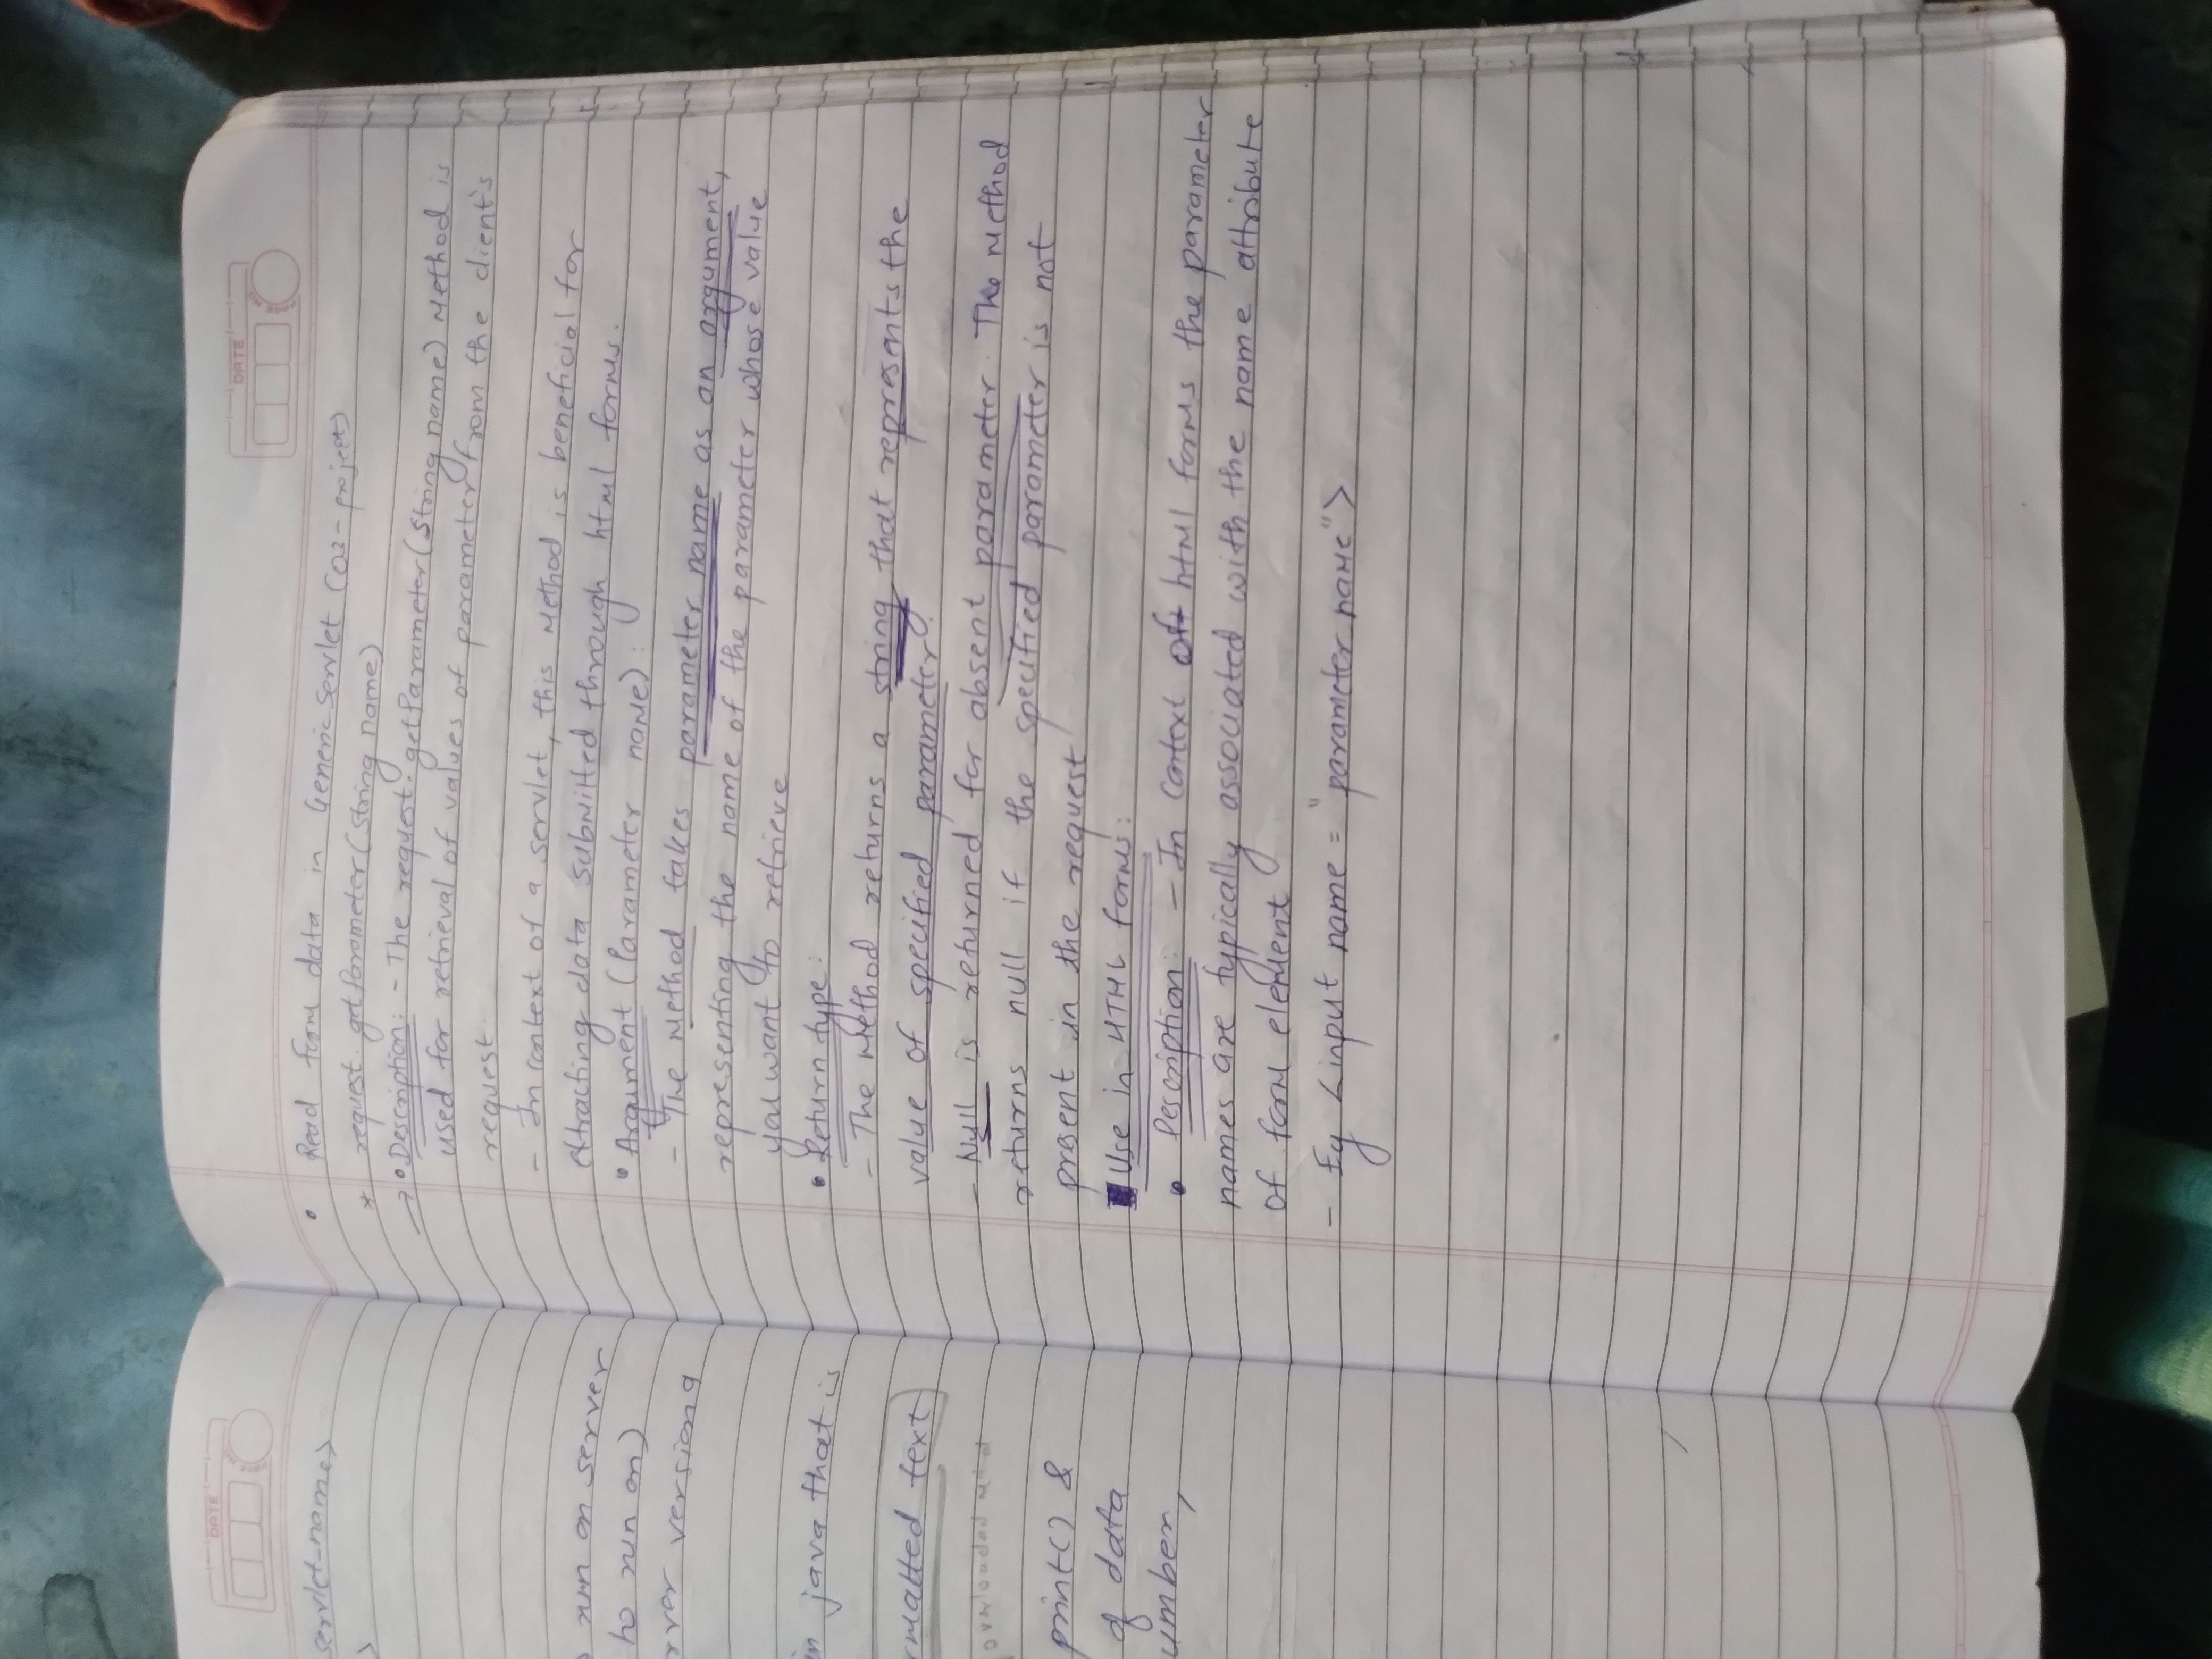 DATE
servlet-name>
>
run on server
to run on)
rver version 9
in java that is
rmatted text
overloaded
print() &
of data
umber,
DATE
• Read form data in GenericServlet (03-project)
* request.getParameter(String name)
→ • Description: - The request.getParameter(String name) Method is
used for retrieval of values of parameter from the client's
request
- In context of a servlet, this Method is beneficial for
extracting data submitted through html forms.
• Argument (Parameter name):
- The Method takes parameter name as an argument,
representing the name of the parameter whose value
you want to retrieve
• Return type:
- The Method returns a string that represents the
value of specified parameter.
- Null is returned for absent parameter. The Method
returns null if the specified parameter is not
present in the request
Use in HTML forms:
• Description: - In context of html forms the parameter
names are typically associated with the name attribute
of form element
- Eg <input name = "parameter name">